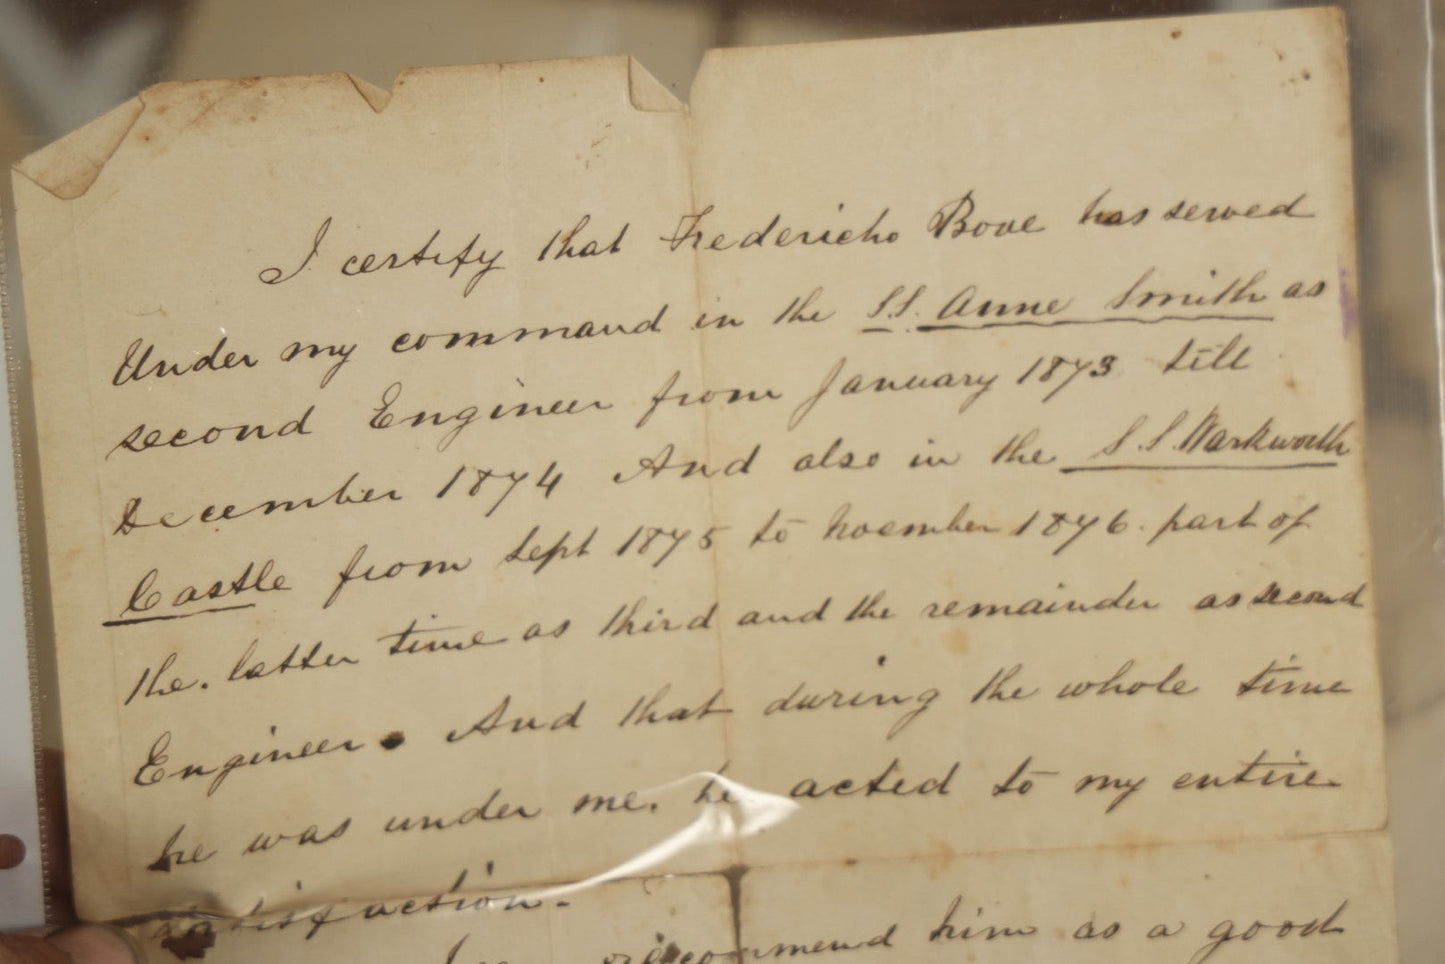 I certify that Fredericho Bove has served
Under my command in the S.S. Anne Smith as
second Engineer from January 1873 till
December 1874 And also in the S.S. Warkworth
Castle from Sept 1875 to Noember 1876. part of
the. latter time as third and the remainder as second
Engineer. And that during the whole time
he was under me. he acted to my entire
satisfaction.-
recommend him as a good